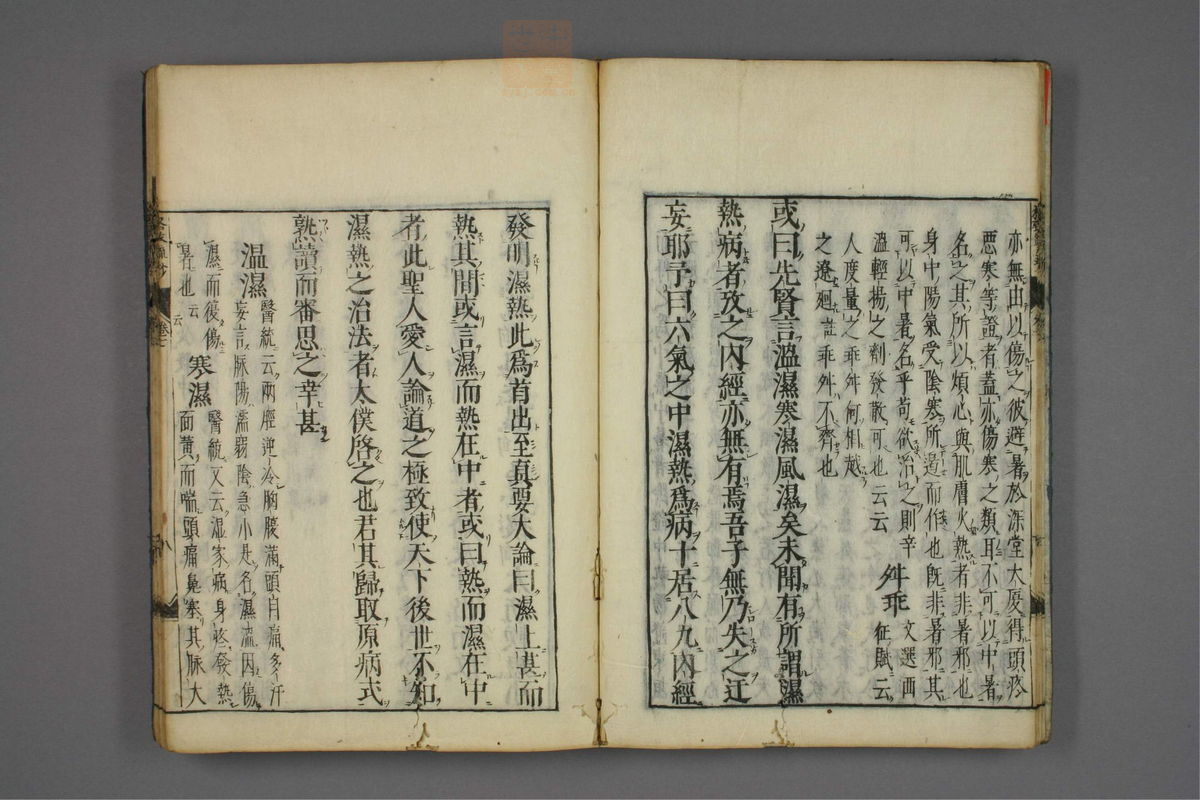 亦無由以傷之彼避暑於深堂大厦得頭疼
惡寒等證者蓋亦傷寒之類耳不可以中暑
名之其所以煩心與肌膚火熱者非暑邪也
身中陽氣受陰寒所遏而作也既非暑邪其
可以中暑名乎苟欲治之則辛
溫輕揚之劑發散可也云云
舛乖
文選西
征賦云
人度量之乖舛何相越
之遼迴註乖舛不齊也
或曰先賢言溫濕寒濕風濕矣未聞有所謂濕
熱病者攷之內經亦無有焉吾子無乃失之迂
妄耶予曰六氣之中濕熱爲病十居八九內經
發明濕熱此爲首出至眞要大論曰濕上甚而
熱其間或言濕而熱在中者或曰熱而濕在中
者此聖人愛人論道之極致使天下後世不知
濕熱之治法者太僕啓之也君其歸取原病式
熟讀而審思之幸甚
溫濕
醫統云兩脛逆冷胸腹滿頭目痛多汗
妄言脉陽濡弱陰急小是名濕溫因傷
濕而復傷
暑也云云
寒濕
醫統又云濕家病身疼發熱
面黄而喘頭痛鼻塞其脉大
卷七
八